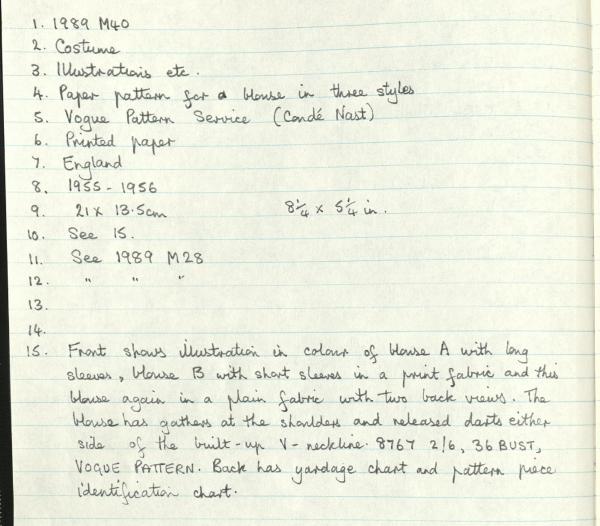 1. 1989 M40
2. Costume
3. Illustrations etc.
4. Paper pattern for a blouse in three styles
5. Vogue Pattern Service (Condé Nast)
6. Printed paper
7. England
8. 1955 - 1956
9. 21 x 13.5cm 8 1/4 x 5 1/4 in.
10. See 15.
11. See 1989 M28
12. " " "
13.
14.
15. Front shows illustration in colour of blouse A with long
sleeves, blouse B with short sleeves in a print fabric and this
blouse again in a plain fabric with two back views. The
blouse has gathers at the shoulders and released darts either
side of the built-up V-neckline. 8767 2/6, 36 BUST,
VOGUE PATTERN. Back has yardage chart and pattern piece
identification chart.